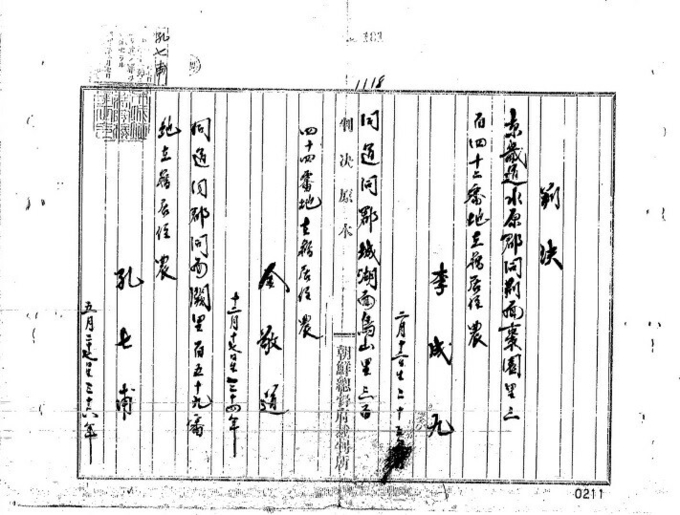 孔七甫
1118
判決
京畿道水原郡同剏面棗園里三
百四十二番地在籍居住農
李成九
二月十二日生二十五年
同道同郡城湖面烏山里三百
判決原本
朝鮮總督府裁判所
四十四番地在籍居住農
金敬道
十二月十七日生三十四年
同道同郡同面闕里百五十九番
地在籍居住農
孔七甫
五月二十七日生三十六年
0211